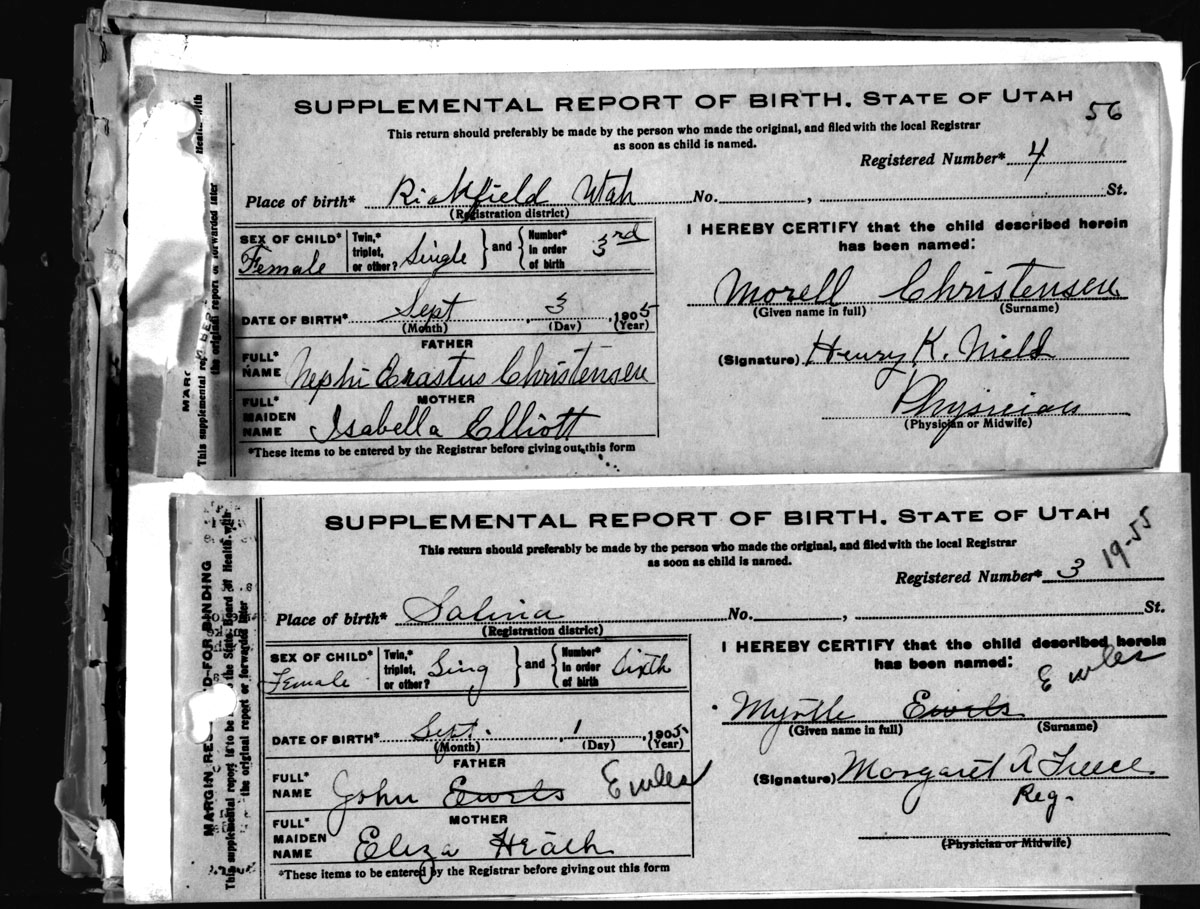 SUPPLEMENTAL REPORT OF BIRTH. STATE OF UTAH 56
This return should preferably be made by the person who made the original, and filed with the local Registrar
as soon as child is named.
Registered Number* 4
Place of birth* Richfield Utah No. , St.
(Registration district)
SEX OF CHILD* Female Twin,* triplet, or other? Single } and { Number* in order of birth 3rd
DATE OF BIRTH* Sept 3, 1905
(Month) (Day) (Year)
FATHER
FULL* NAME Nephi Erastus Christensen
MOTHER
FULL* MAIDEN NAME Isabella Elliott
*These items to be entered by the Registrar before giving out this form
I HEREBY CERTIFY that the child described herein
has been named:
Morell Christensen
(Given name in full) (Surname)
(Signature) Henry K. Nield
Physician
(Physician or Midwife)
This supplemental
the original report or forwarded later
SUPPLEMENTAL REPORT OF BIRTH. STATE OF UTAH
19-55
This return should preferably be made by the person who made the original, and filed with the local Registrar
as soon as child is named.
Registered Number* 3
Place of birth* Salina No. , St.
(Registration district)
SEX OF CHILD* Female Twin,* triplet, or other? Sing } and { Number* in order of birth Sixth
DATE OF BIRTH* Sept. 1, 1905
(Month) (Day) (Year)
FATHER
FULL* NAME John Ewels Ewles
MOTHER
FULL* MAIDEN NAME Eliza Heath
*These items to be entered by the Registrar before giving out this form
I HEREBY CERTIFY that the child described herein
has been named:
Ewles
Myrtle Ewels
(Given name in full) (Surname)
(Signature) Margaret A Freece
Reg.
(Physician or Midwife)
MARGIN RES D-FOR BINDING
This supplemental report is to be the State Board of Health with
the original report or forwarded later